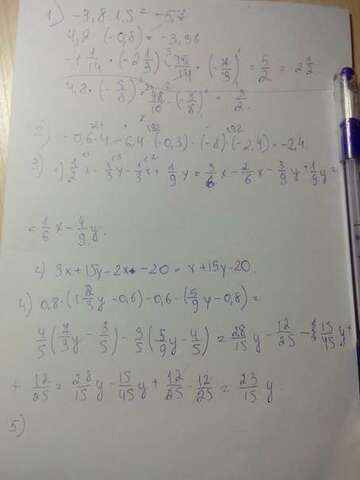 1) -3,8 · 1.5 = -5.7
4,2 · (-0,8) = -3,36
-1 1/14 · (-2 1/3) = 15/14 · (-7/3) = 5/2 = 2 1/2
4.8 · (-5/8) = 48/10 · (-5/8) = 3/2.
2) -0,6·4 - 6,4 (-0,3) · (-8) · (-2,4) = -2,4.
3) 1) 1/2 x - 1/3 y - 1/3 x + 1/9 y = 3/6 x - 2/6 x - 3/9 y + 1/9 y =
= 1/6 x - 4/9 y.
2) 3x + 15y - 2x - 20 = x + 15y - 20.
4) 0.8 · (1 2/3 y - 0,6) - 0.6 · (5/9 y - 0,8) =
4/5 (7/3 y - 3/5) - 3/5 (5/9 y - 4/5) = 28/15 y - 12/25 - 15/45 y +
+ 12/25 = 28/15 y - 15/45 y + 12/25 - 12/25 = 23/15 y.
5)